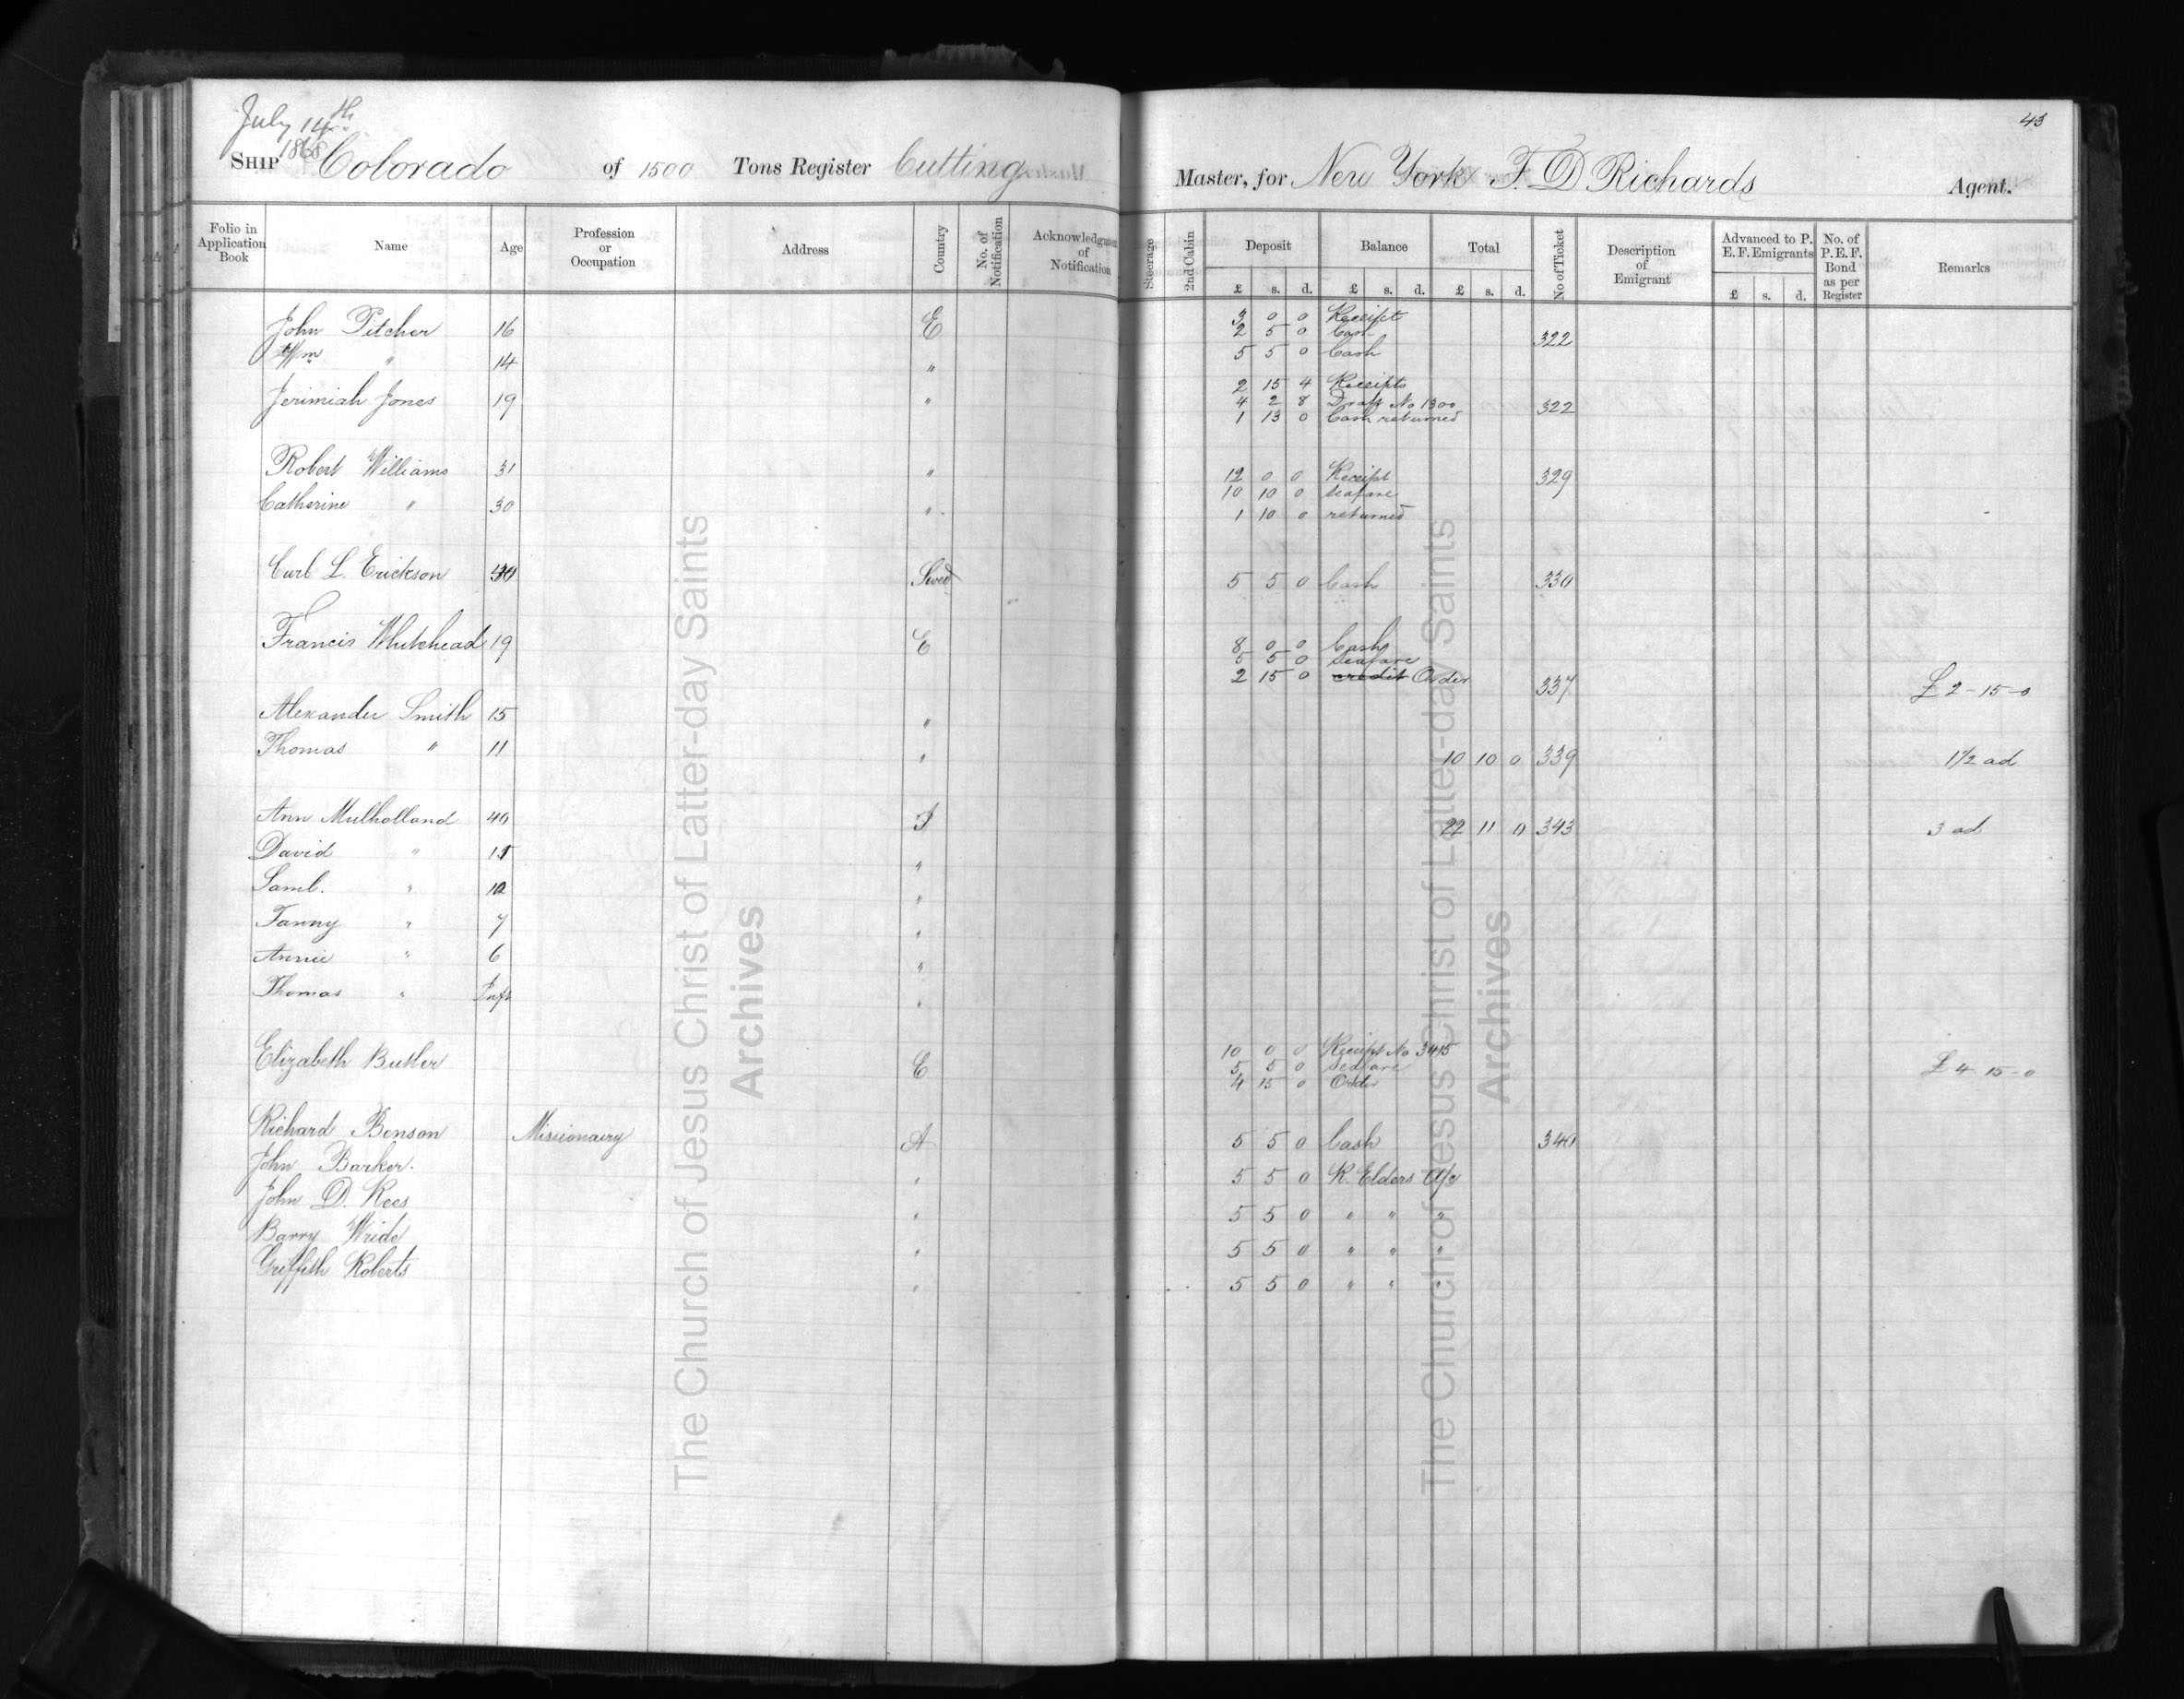 July 14th
1868
43
SHIP Colorado of 1500 Tons Register Cutting Master, for New York F. D Richards Agent.
Folio in Application Book Name Age Profession or Occupation Address Country No. of Notification Acknowledgment of Notification Steerage 2nd Cabin Deposit Balance Total No of Ticket Description of Emigrant Advanced to P. E. F. Emigrants No. of P. E. F. Bond as per Register Remarks
£ s. d. £ s. d. £ s. d. £ s. d.
John Pitcher 16 E 3 0 0 Receipt
2 5 0 Cash 322
Wm " 14 " 5 5 0 Cash
2 15 4 Receipts
Jerimiah Jones 19 " 4 2 8 Draft No 1300 322
1 13 0 Cash returned
Robert Williams 31 " 12 0 0 Receipt 329
10 10 0 seafare
Catherine " 30 " 1 10 0 returned
Carl L. Erickson 40 Swed 5 5 0 Cash 330
Francis Whitehead 19 E 8 0 0 Cash
5 5 0 seafare
2 15 0 credit Order 337 £2-15-0
Alexander Smith 15 "
Thomas " 11 " 10 10 0 339 1 1/2 ad
Ann Mulholland 40 I 22 11 0 343 3 ad
David " 15 "
Saml. " 12 "
Fanny " 7 "
Annie " 6 "
Thomas " Inft "
Elizabeth Butler E 10 0 0 Receipt No 3415
5 5 0 seafare
4 15 0 Order £4-15-0
Richard Benson Missionairy A 5 5 0 Cash 340
John Barker. " 5 5 0 R. Elders a/c
John D. Rees " 5 5 0 " " "
Barry Wride " 5 5 0 " " "
Griffith Roberts " 5 5 0 " " "
The Church of Jesus Christ of Latter-day Saints
Archives
The Church of Jesus Christ of Latter-day Saints
Archives